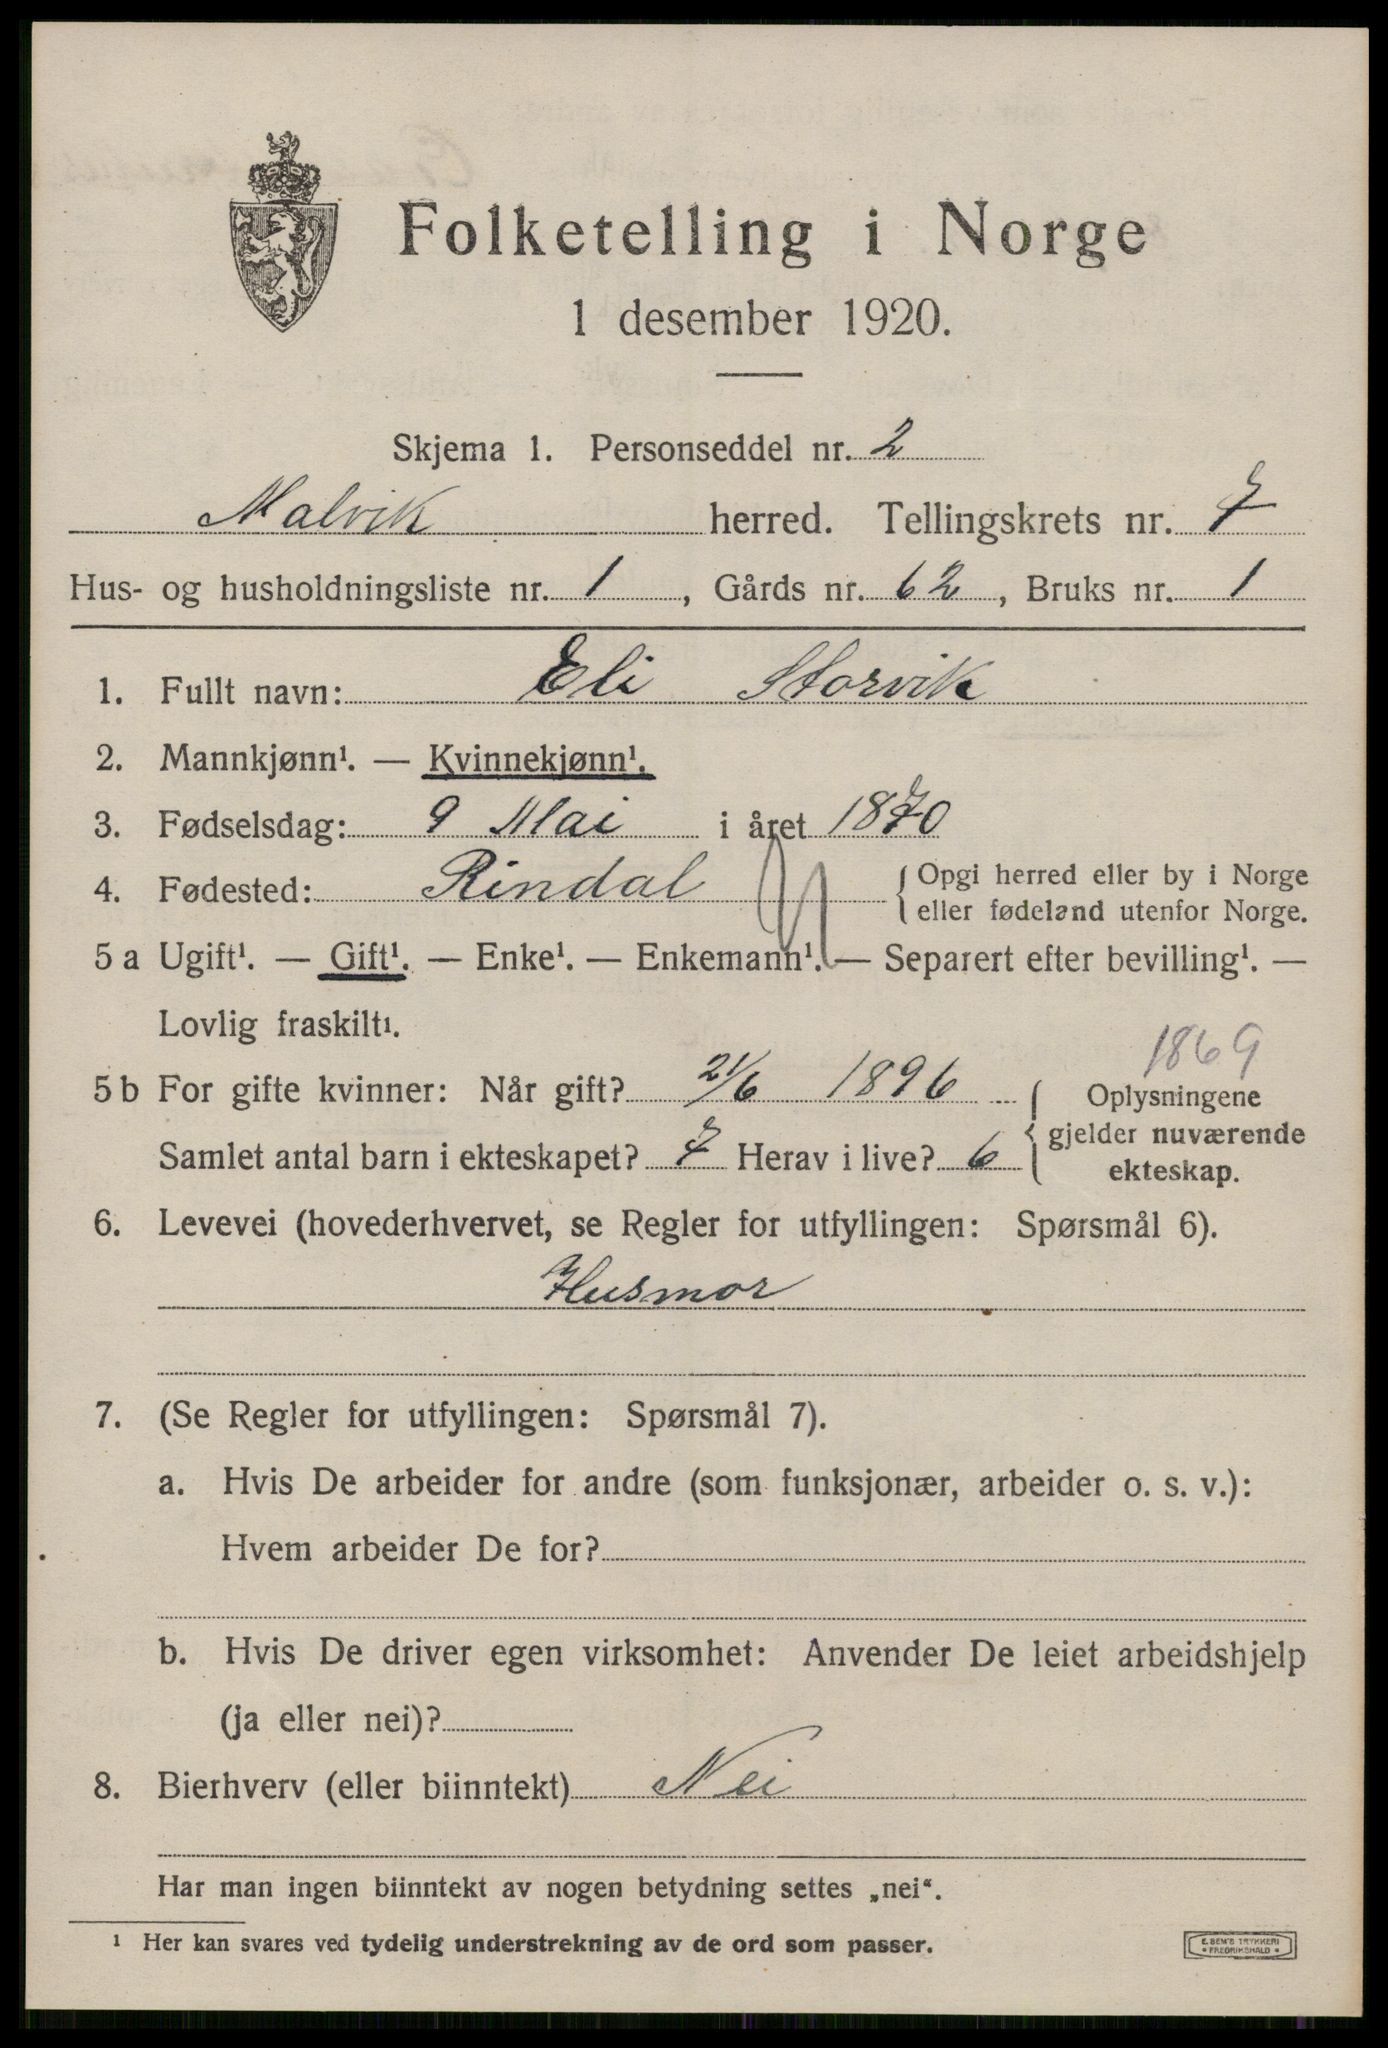 Folketelling i Norge
1 desember 1920.
Skjema 1. Personseddel nr. 2
Malvik herred. Tellingskrets nr. 7
Hus- og husholdningsliste nr. 1, Gårds nr. 62, Bruks nr. 1
1. Fullt navn: Eli Storvik
2. Mannkjønn¹. — Kvinnekjønn¹.
3. Fødselsdag: 9 Mai i året 1870
4. Fødested: Rindal { Opgi herred eller by i Norge
eller fødeland utenfor Norge.
5 a Ugift¹. — Gift¹. — Enke¹. — Enkemann¹. — Separert efter bevilling¹. —
Lovlig fraskilt¹.
1869
5 b For gifte kvinner: Når gift? 21/6 1896 { Oplysningene
gjelder nuværende
Samlet antal barn i ekteskapet? 7 Herav i live? 6
ekteskap.
6. Levevei (hovederhvervet, se Regler for utfyllingen: Spørsmål 6).
Husmor
7. (Se Regler for utfyllingen: Spørsmål 7).
a. Hvis De arbeider for andre (som funksjonær, arbeider o. s. v.):
Hvem arbeider De for?
b. Hvis De driver egen virksomhet: Anvender De leiet arbeidshjelp
(ja eller nei)?
8. Bierhverv (eller biinntekt) Nei
Har man ingen biinntekt av nogen betydning settes „nei“.
¹ Her kan svares ved tydelig understrekning av de ord som passer.
E. SEM'S TRYKKERI
• FREDRIKSHALD •